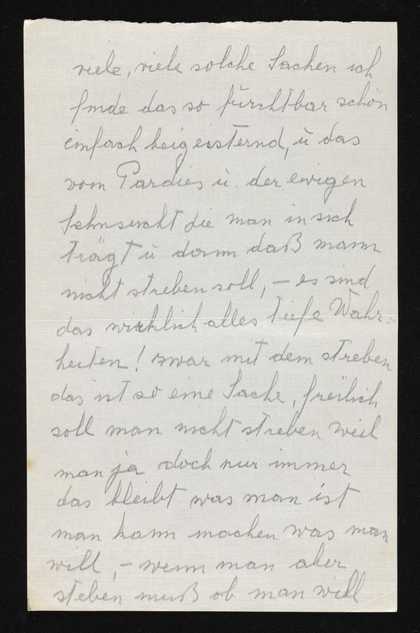 viele, viele solche Sachen ich
finde das so fürchtbar schön
einfach beigeisternd, ü das
vom Pardies ü. der ewigen
Sehnsucht die man in sich
trägt ü dann daß mann
nicht streben soll, – es sind
das wirklich alles tiefe Wahr=
heiten! zwar mit dem streben
das ist so eine Sache, freilich
soll man nicht streben weil
man ja doch nur immer
das bleibt was man ist
man kann machen was man
will, – wenn man aber
steben muß ob man will